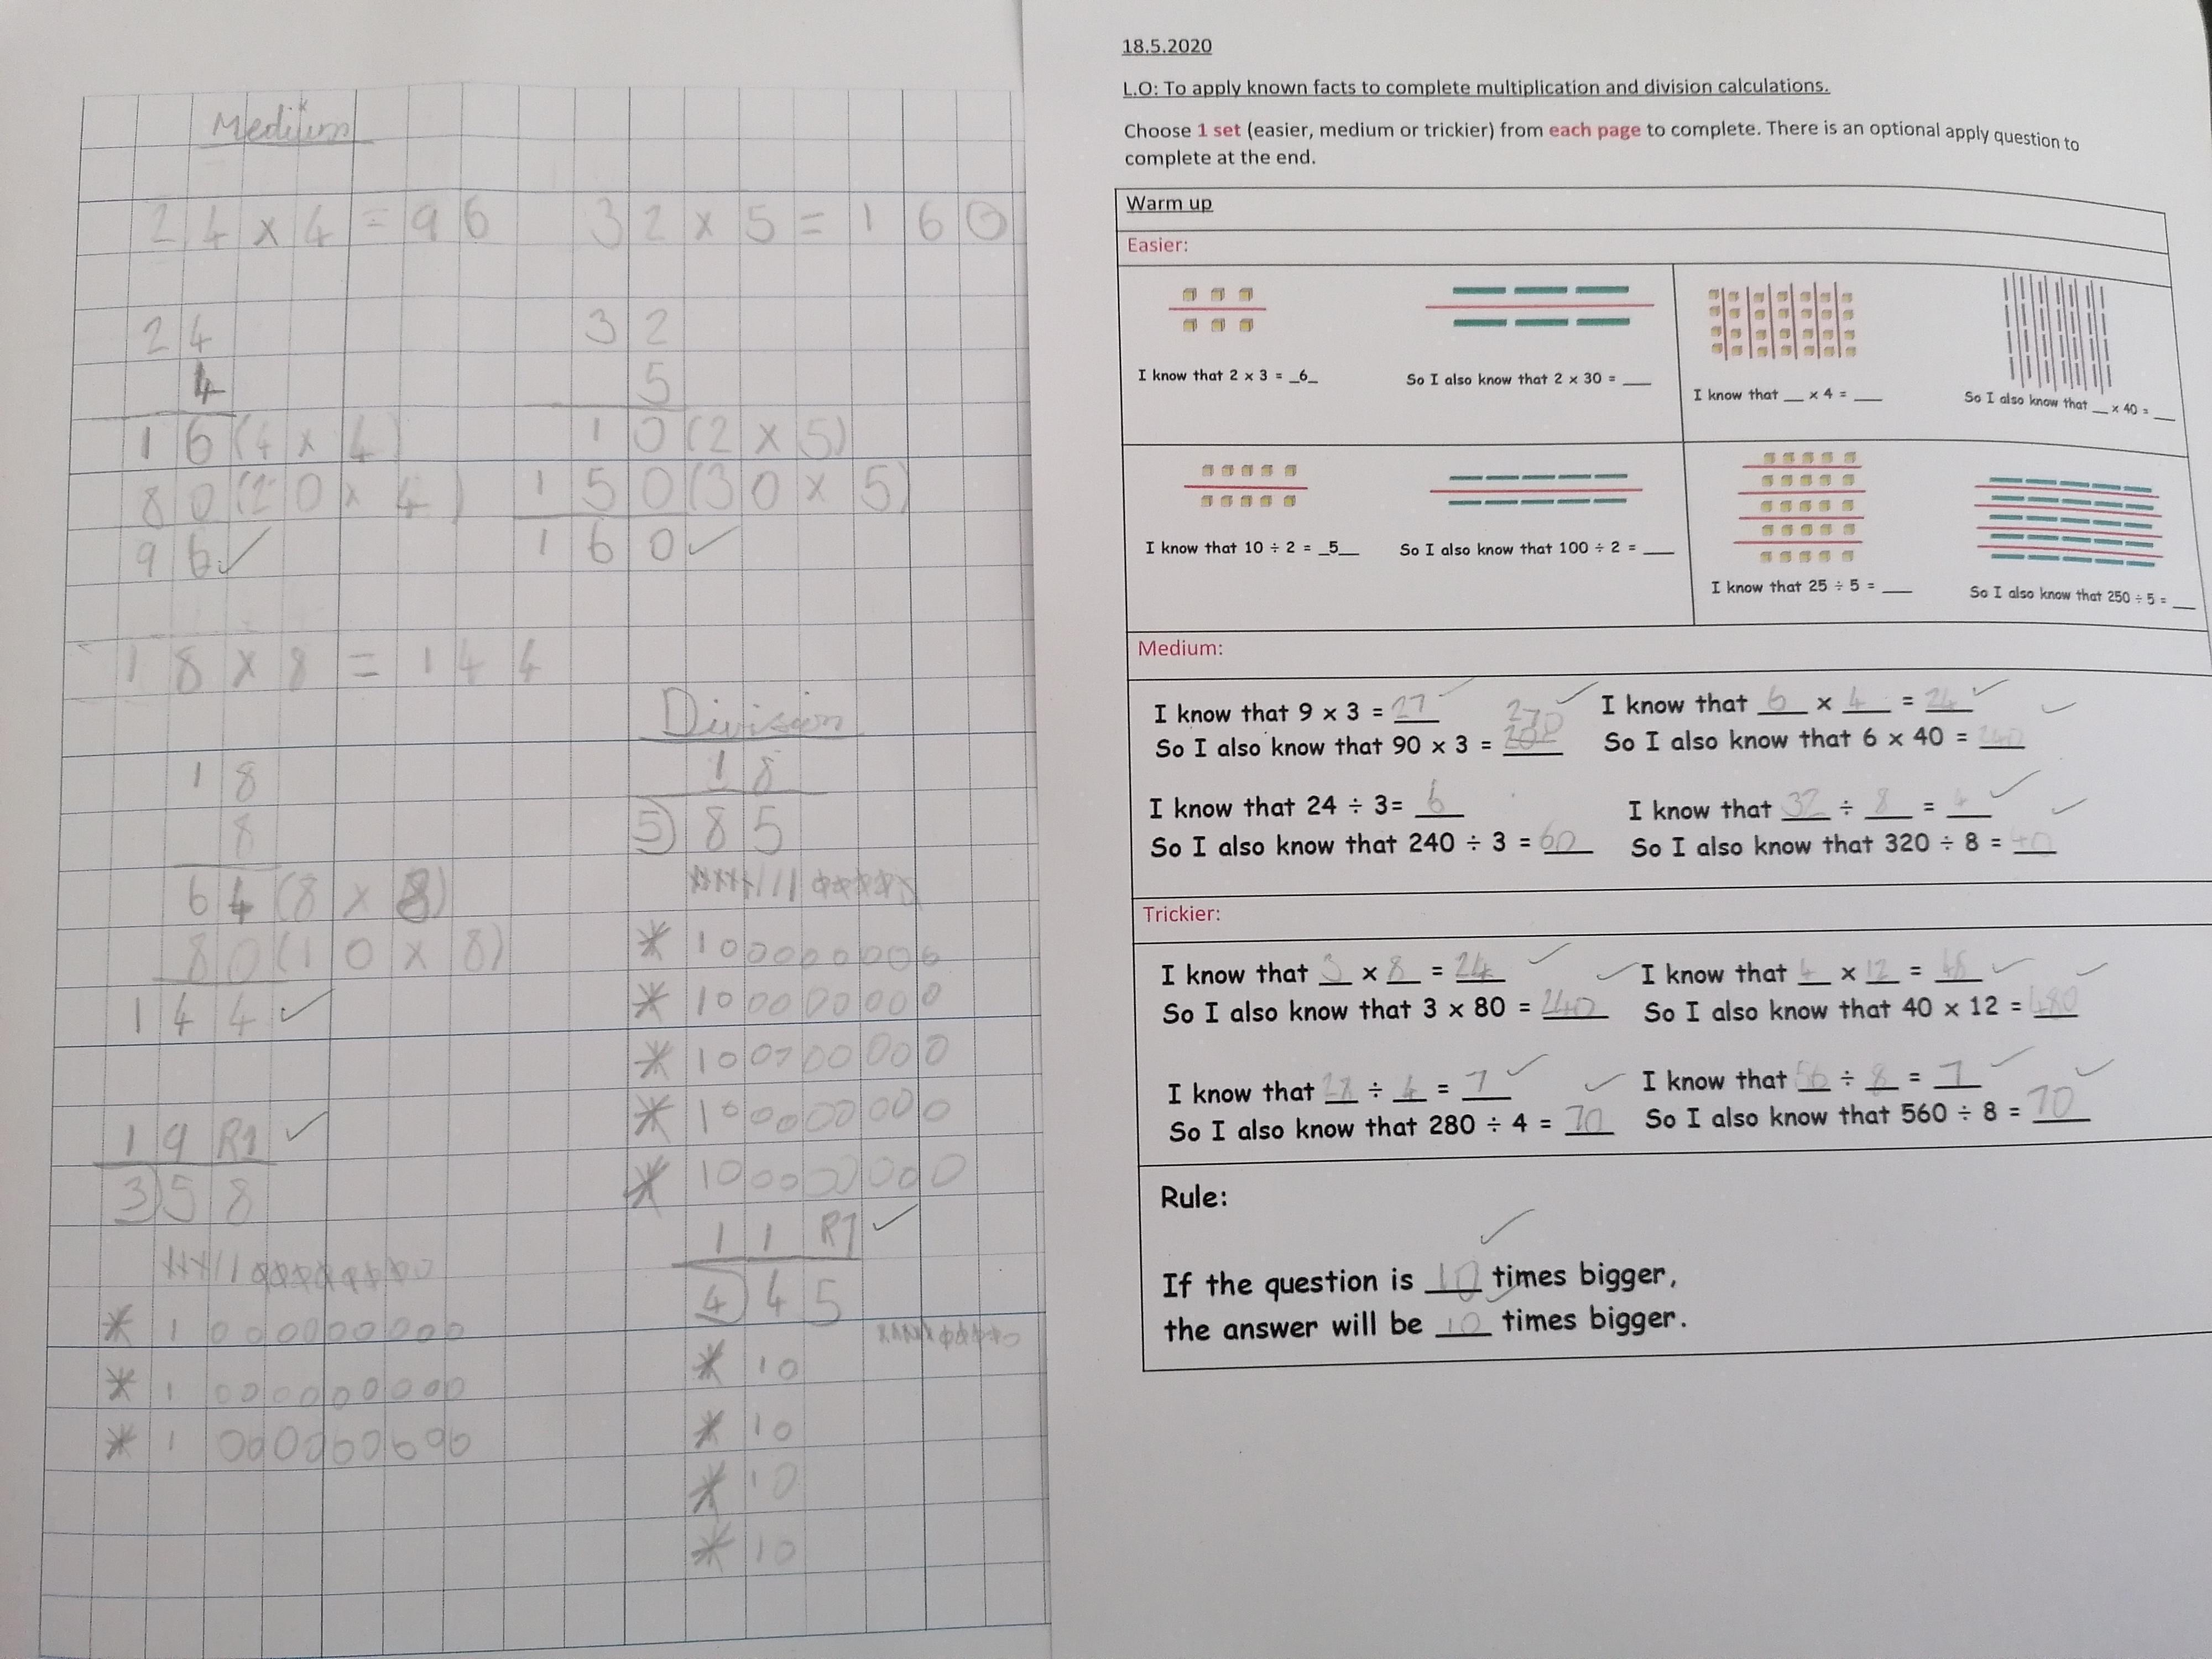 Medium
24 x 4 = 96
32 x 5 = 160
24
4
16 (4 x 4)
80 (20 x 4)
96 ✓
32
5
10 (2 x 5)
150 (30 x 5)
160 ✓
18 x 8 = 144
18
8
64 (8 x 8)
80 (10 x 8)
144 ✓
19 R1 ✓
3)58
* 1 000000000
* 1 000000000
* 1 000000000
Division
18
5)85
* 1 00000000
* 1 00000000
* 1 00000000
* 1 00000000
* 1 00000000
11 R1 ✓
4)45
* 10
* 10
* 10
* 10
18.5.2020
L.O: To apply known facts to complete multiplication and division calculations.
Choose 1 set (easier, medium or trickier) from each page to complete. There is an optional apply question to
complete at the end.
Warm up
Easier:
I know that 2 x 3 = _6_
So I also know that 2 x 30 = ___
I know that __ x 4 = ___
So I also know that __ x 40 = ___
I know that 10 ÷ 2 = _5__
So I also know that 100 ÷ 2 = ___
I know that 25 ÷ 5 = ___
So I also know that 250 ÷ 5 = ___
Medium:
I know that 9 x 3 = 27 ✓
270 ✓
So I also know that 90 x 3 =
I know that 6 x 4 = 24 ✓
So I also know that 6 x 40 = 240 ✓
I know that 24 ÷ 3= 6
So I also know that 240 ÷ 3 = 60
I know that 32 ÷ 8 = 4 ✓
So I also know that 320 ÷ 8 = 40 ✓
Trickier:
I know that 3 x 8 = 24 ✓
So I also know that 3 x 80 = 240 ✓
I know that 4 x 12 = 48 ✓
So I also know that 40 x 12 = 480 ✓
I know that 28 ÷ 4 = 7 ✓
So I also know that 280 ÷ 4 = 70 ✓
I know that 56 ÷ 8 = 7 ✓
So I also know that 560 ÷ 8 = 70 ✓
Rule:
If the question is 10 times bigger,
the answer will be 10 times bigger.